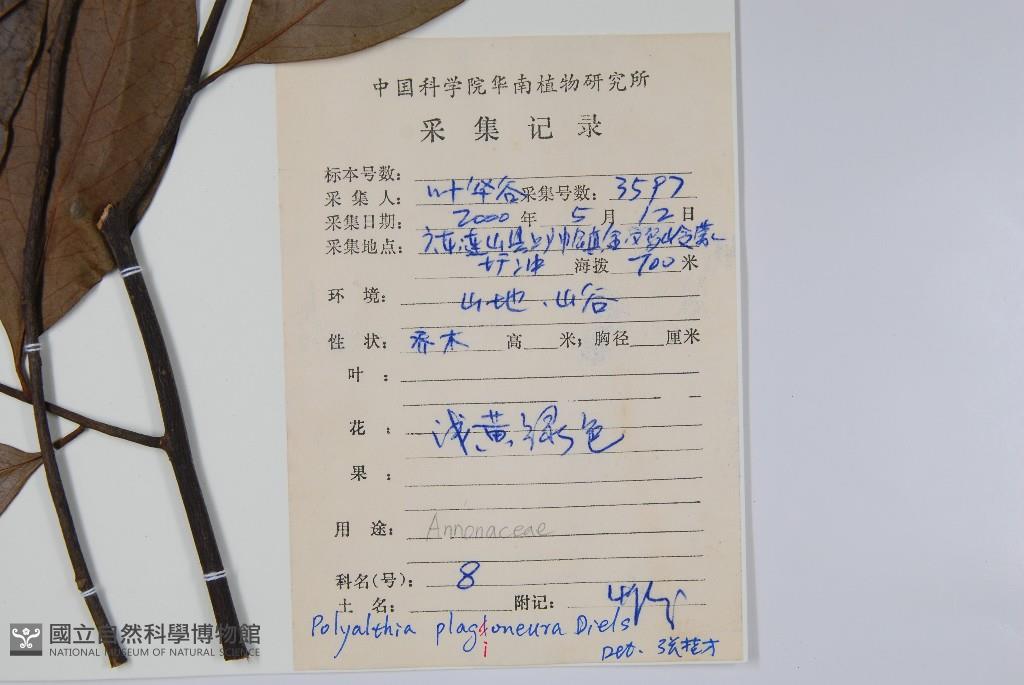 中国科学院华南植物研究所
采集记录
标本号数:
采集人: 叶华谷 采集号数: 3597
采集日期: 2000 年 5 月 12 日
采集地点: 广东连山县上帅镇
海拨 700 米
环境: 山地、山谷
性状: 乔木 高 米; 胸径 厘米
叶:
花: 浅黄绿色
果:
用途: Annonaceae
科名(号): 8
土名: 附记:
Polyalthia plagioneura Diels
Det. 张楚才
國立自然科學博物館
NATIONAL MUSEUM OF NATURAL SCIENCE